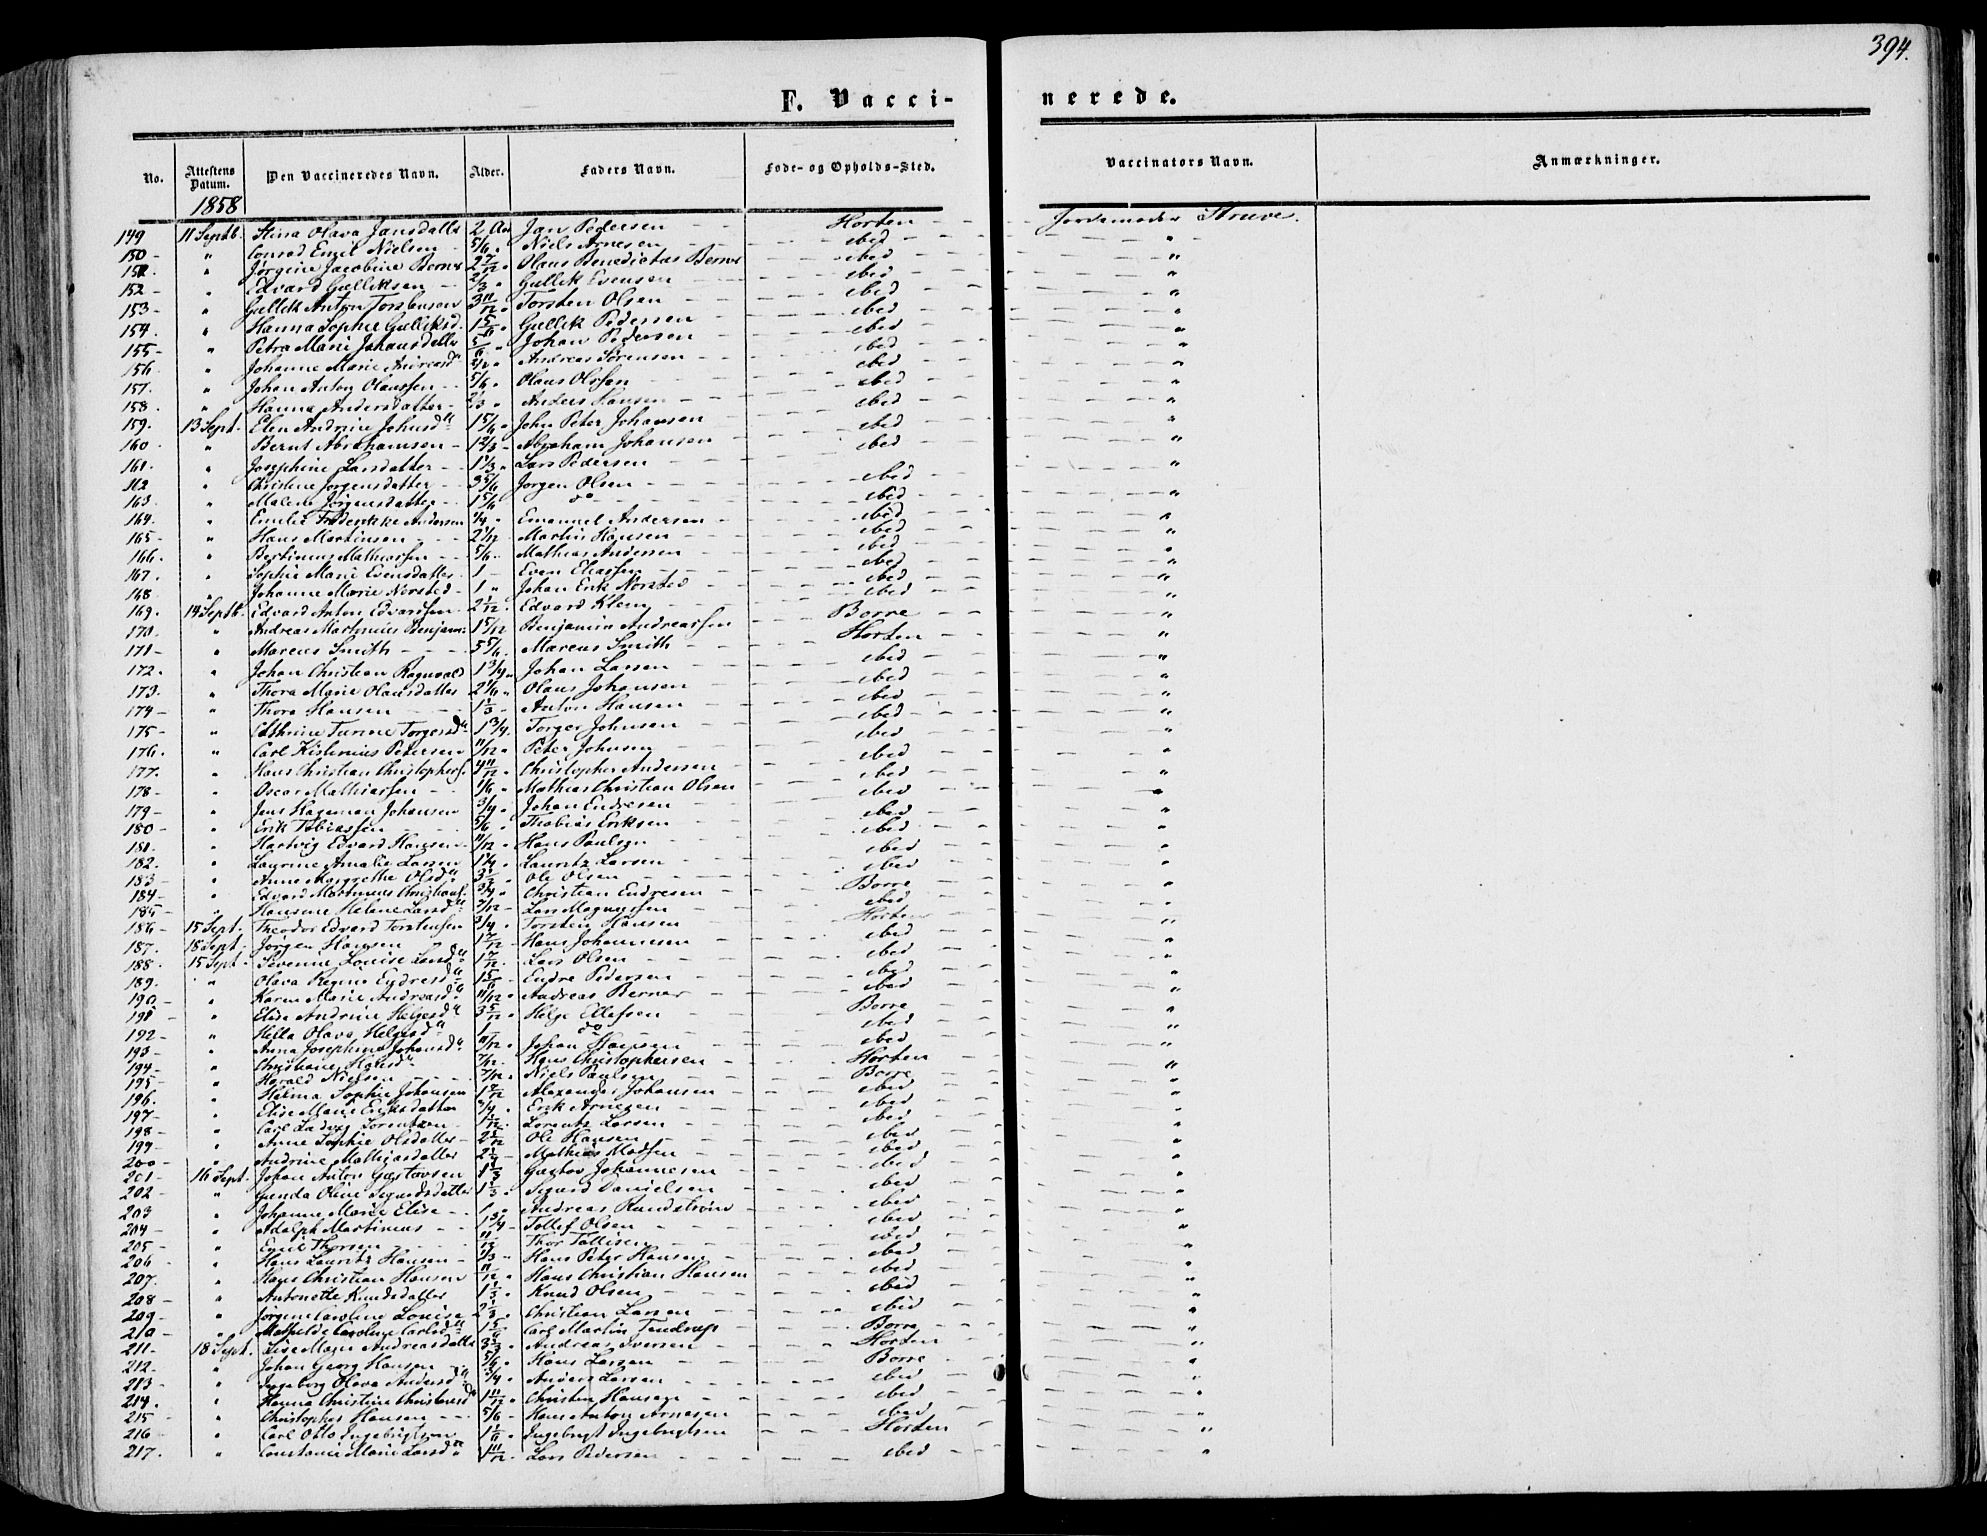 394.
F. Vacci-
nerede.
No. Attestens Datum. Den Vaccineredes Navn. Alder. Faders Navn. Føde- og Opholds-Sted. Vaccinators Navn. Anmærkninger.
1858
149 11 Septb. Stina Olava Jansdatter 2 Aar Jan Pedersen Horten Jordemoder Struve.
150 " Conrad Emil Nielsen 5/6 " Niels Arnesen ibid "
151 " Jørgine Jacobine Berner 2 7/12 " Olaus Benedictus Berner ibid "
152 " Edvard Gulliksen 2/3 " Gullik Evensen ibid "
153 " Gullik Anton Torstensen 3 11/12 " Torsten Olsen ibid "
154 " Hanna Sophie Gulliksd. 1 5/6 " Gullik Pedersen ibid "
155 " Petra Marie Johansdatter 5/6 " Johan Pedersen ibid "
156 " Johanne Marie Andreasdr Andreas Sørensen ibid "
157 " Johan Anton Olaussen 5/6 " Olaus Olssen ibid "
158 " Hanna Andersdatter 2/3 " Anders Hansen ibid "
159 13 Sept. Elen Andrine Johnsdr 1 5/6 " John Peter Johansen ibid "
160 " Bernt Abrahamsen 1 2/3 Abraham Johansen ibid "
161 " Josephine Larsdatter 1 1/3 " Lars Pedersen ibid "
162 " Christine Jørgensdatter 3 5/6 Jørgen Olsen ibid "
163 " Malene Jørgensdatter 1 5/6 do ibid "
164 " Emilie Frederikke Andersen 3/4 " Emanuel Andersen ibid "
165 " Hans Martinsen 2 1/12 Martin Hansen ibid "
166 " Bertinius Mathiassen 5/6 " Mathias Andersen ibid "
167 " Sophie Marie Evensdatter 1 Even Eliassen ibid "
168 " Johanne Marie Norsted 1 " Johan Erik Norsted ibid "
169 14 Septb. Edvard Anton Edvardsen 2 1/12 Edvard Klem Borre "
170 " Andreas Martinius Benjam: 1 5/12 Benjamin Andreassen Horten "
171 " Marcus Smith 5 5/6 Marcus Smith ibid "
172 " Johan Christian Ragnvald 1 3/4 " Johan Larsen ibid "
173 " Thora Marie Olausdatter 2 1/6 " Olaus Johansen ibid "
174 " Thora Hansen 1 1/3 Anton Hansen ibid "
175 " Cathrine Turine Torgersdr 1 3/4 Torger Johnsen ibid "
176 " Carl Kistinius Petersen 11/12 " Peter Johnsen ibid "
177 " Hans Christian Christophers. 4 11/12 " Christopher Andersen ibid "
178 " Oscar Mathiassen 1/6 " Mathias Christian Olsen ibid "
179 " Jens Hageman Johansen 3/4 " Johan Endresen ibid "
180 " Erik Tobiassen 5/6 " Thobias Eriksen ibid "
181 " Hartvig Edvard Hansen 11/12 " Hans Paulsen ibid "
182 " Laurine Amalie Larsen 1 1/4 " Lauritz Larsen ibid "
183 " Anne Margrethe Olsdr Ole Olsen Borre "
184 " Edvard Martinius Christians. 3/4 " Christian Endresen ibid "
185 " Hansine Helene Larsdr 7/12 Lars Magnussen Horten "
186 15 Sept. Theodor Edvard Torstensen 3/4 " Torsten Hansen ibid "
187 18 Sept. Jørgen Hansen 1 7/12 Hans Johannesen ibid "
188 15 Sept. Severine Louise Larsdr 1 7/12 Lars Olsen ibid "
189 " Olava Regine Endresdr Endre Pedersen ibid "
190 " Karen Marie Andreasdr 11/12 " Andreas Berner Borre "
191 " Elise Andrine Helgesdr 3 5/12 " Helge Ellefsen ibid "
192 " Hella Olava Helgesdr 1 do ibid "
193 " Anna Josephine Johansdr 11/12 " Johan Hansen Horten "
194 " Christiane Hansdr 7/12 Hans Christophersen Borre "
195 " Harald Nielsen 7/12 " Niels Paulsen ibid "
196 " Helma Sophie Johansen 1 7/12 Alexander Johansen ibid "
197 " Elise Marie Eriksdatter 3/4 " Erik Arnesen ibid "
198 " Carl Ludvig Lorentzen 1 1/12 Lorentz Larsen ibid "
199 " Anne Sophie Olsdatter 2 5/12 Ole Hansen ibid "
200 " Andrine Mathiasdatter 2 1/4 Mathias Madsen ibid "
201 16 Sept. Johan Anton Gustavsen 1 1/3 Gustav Johannesen ibid "
202 " Gunda Oline Sigurdsdatter 1 1/3 " Sigurd Danielsen ibid "
203 " Johanne Marie Elise 1 " Andreas Rundstrøm ibid "
204 " Adolph Martinius 1 3/4 Tollef Olsen ibid "
205 " Emil Thorsen 11/12 Thor Tollisen ibid "
206 " Hans Lauritz Hansen 1/3 " Hans Peter Hansen ibid "
207 " Hans Christian Hansen 11/12 " Hans Christian Hansen ibid "
208 " Antonette Knudsdatter 1 1/3 " Knud Olsen ibid "
209 " Jørgine Caroline Louise 2 1/3 " Christian Larsen Borre "
210 " Mathilde Caroline Carlsdr Carl Martin Tendrup Horten "
211 18 Sept. Lise Marie Andreasdatter Andreas Iversen Borre "
212 " Johan Georg Hansen 5/6 " Hans Larsen ibid "
213 " Ingeborg Olava Andersdr 3/4 " Anders Larsen ibid "
214 " Hanna Christine Christensdr 1 11/12 " Christen Hansen ibid "
215 " Christopher Hansen 5/6 Hans Anton Arnesen Horten "
216 " Carl Otto Ingebrigtsen 1 1/6 " Ingebrigt Ingebrigtsen ibid "
217 " Constance Marie Larsdr 1 11/12 Lars Pedersen ibid "